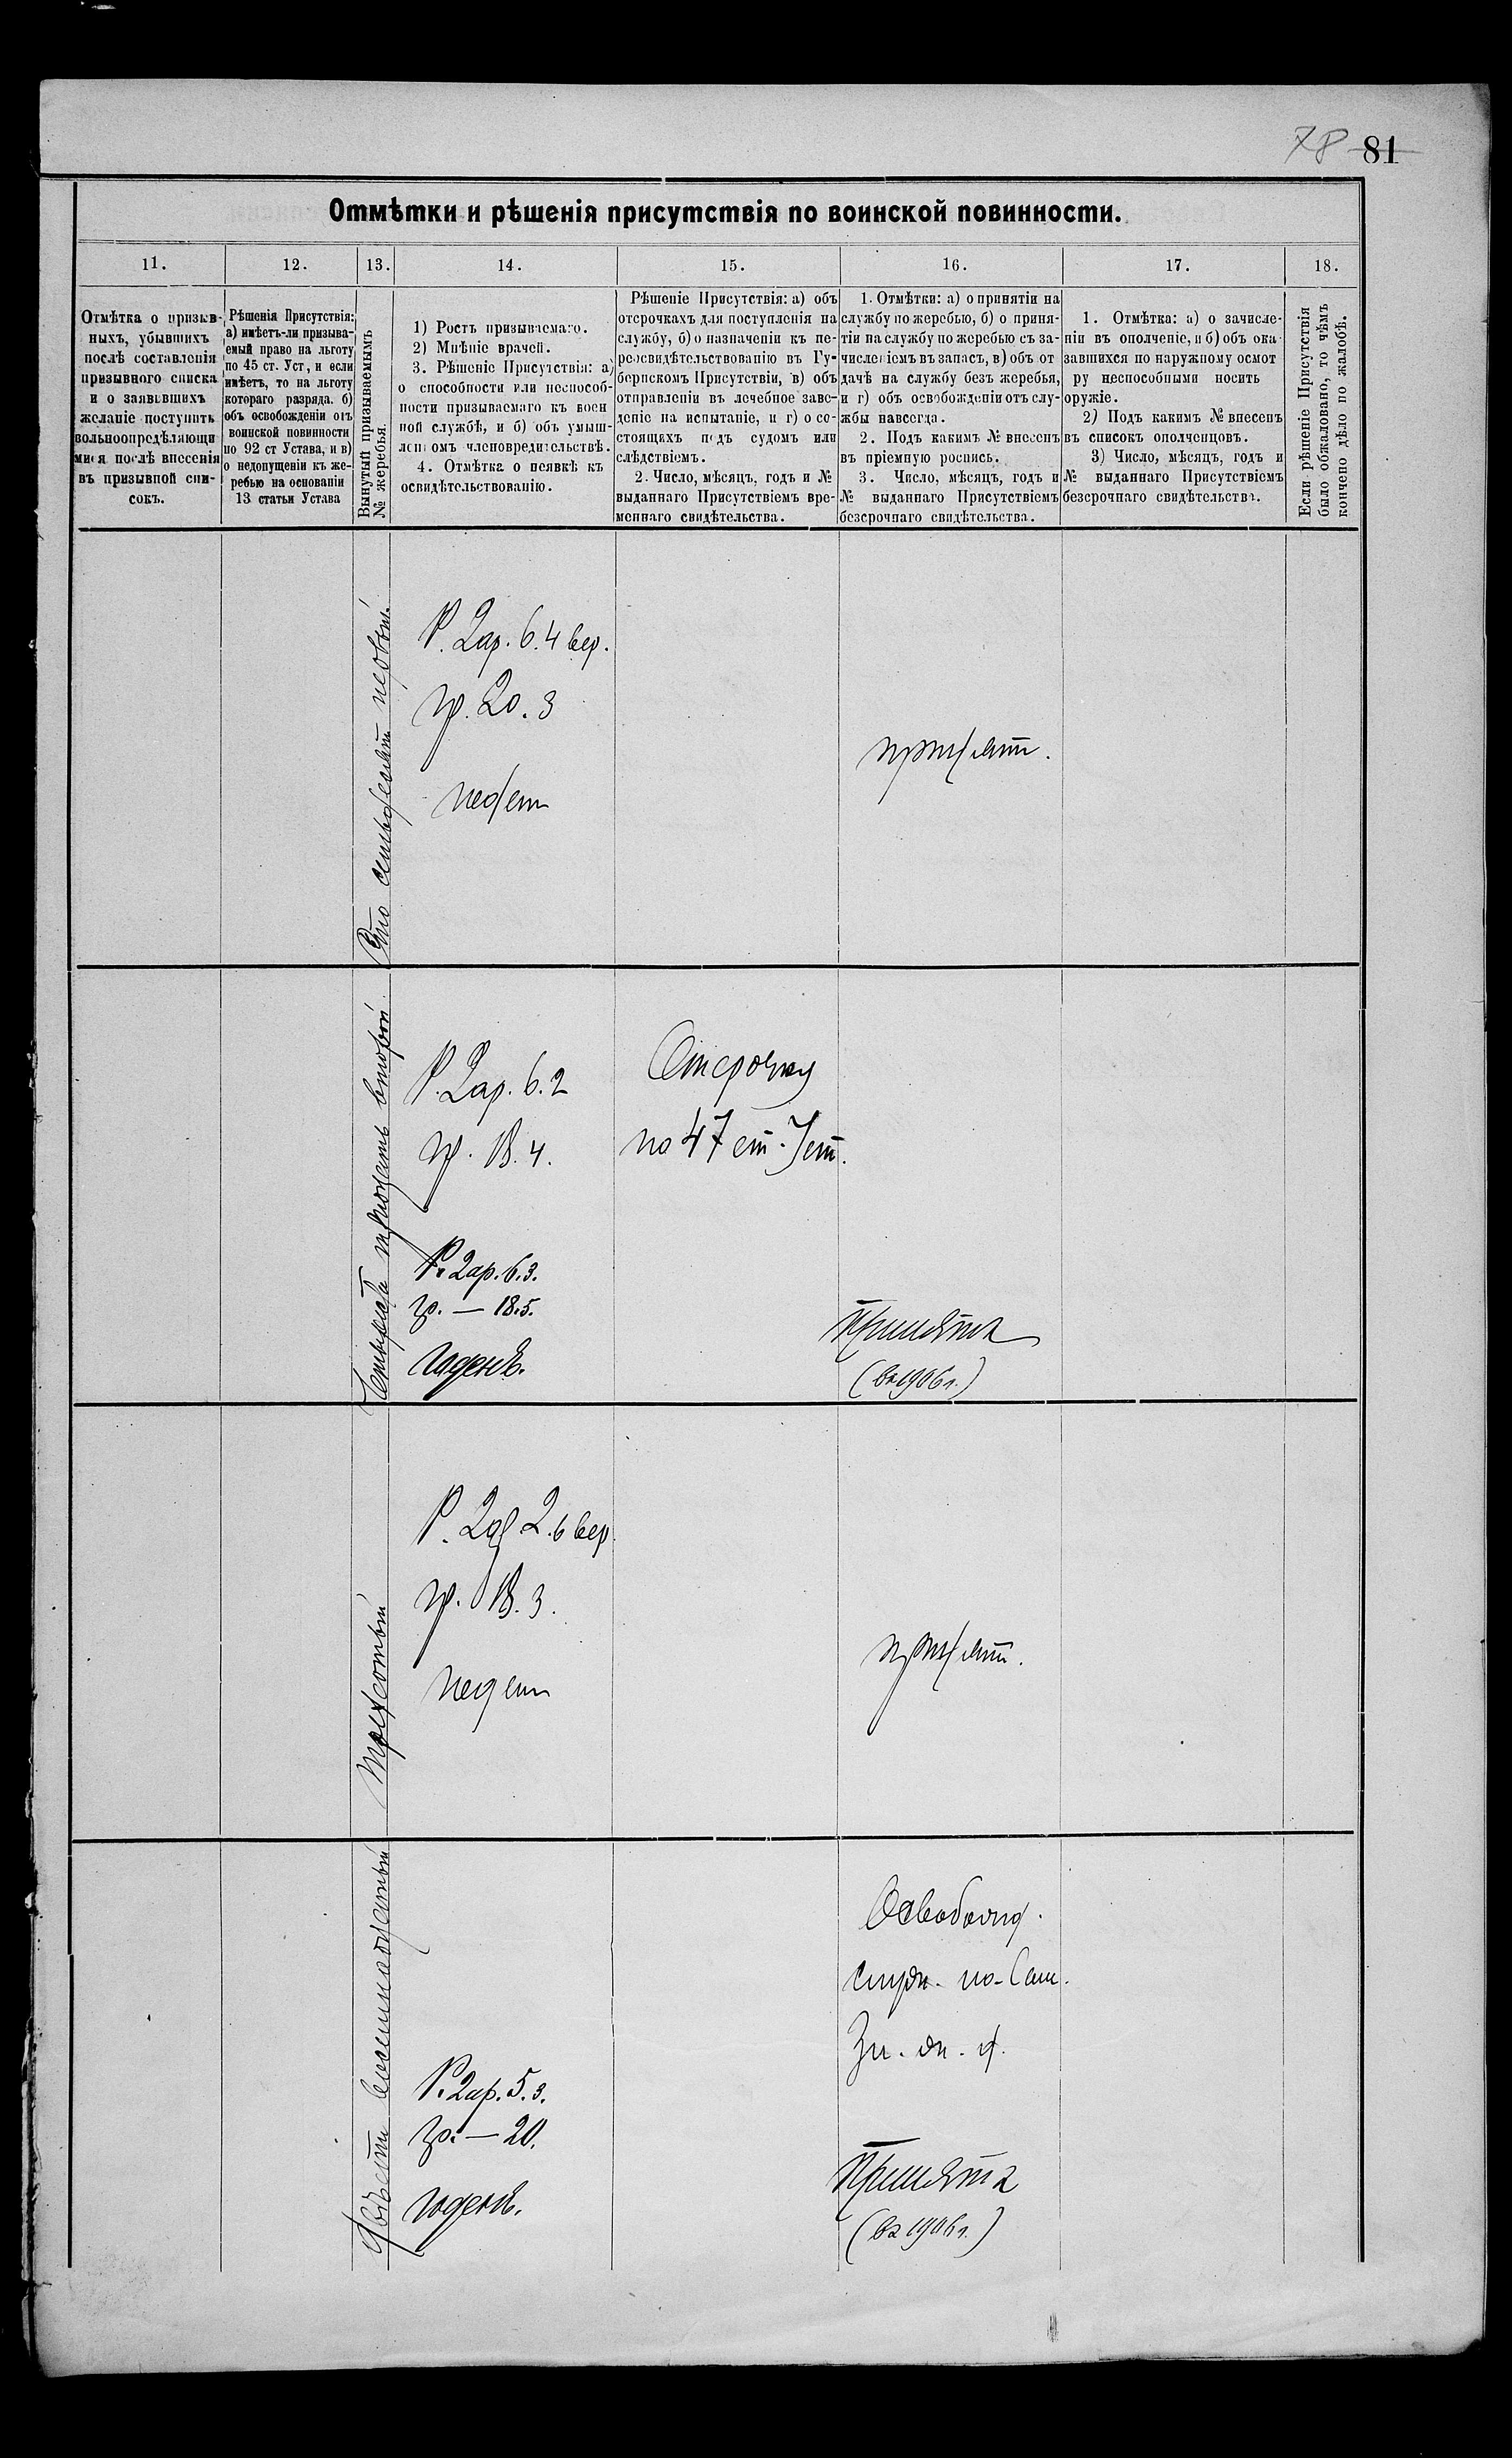 78 81
Отмѣтки и рѣшенія присутствія по воинской повинности.
11. 12. 13. 14. 15. 16. 17. 18.
Отмѣтка о призыв-
ныхъ, убывшихъ
послѣ составленія
призывного списка
и о заявившихъ
желаніе поступить
вольноопредѣляющи
мися послѣ внесенія
въ призывной спи-
сокъ.
Рѣшенія Присутствія:
а) имѣетъ-ли призыва-
емый право на льготу
по 45 ст. Уст, и если
имѣетъ, то на льготу
котораго разряда. б)
объ освобожденіи отъ
воинской повинности
по 92 ст Устава, и в)
о недопущеніи къ же-
ребью на основаніи
13 статьи Устава
Вынутый призываемымъ
№ жеребья.
1) Ростъ призываемаго.
2) Мнѣніе врачей.
3. Рѣшеніе Присутствія: а)
о способности или неспособ-
ности призываемаго къ воен
ной службѣ, и б) объ умыш-
ленномъ членовредительствѣ.
4. Отмѣтка о неявкѣ къ
освидѣтельствованію.
Рѣшеніе Присутствія: а) объ
отсрочкахъ для поступленія на
службу, б) о назначеніи къ пе-
реосвидѣтельствованію въ Гу-
бернскомъ Присутствіи, в) объ
отправленіи въ лечебное заве-
деніе на испытаніе, и г) о со-
стоящихъ подъ судомъ или
слѣдствіемъ.
2. Число, мѣсяцъ, годъ и №
выданнаго Присутствіемъ вре-
меннаго свидѣтельства.
1. Отмѣтки: а) о принятіи на
службу по жеребью, б) о приня-
тіи на службу по жеребью съ за-
численіемъ въ запасъ, в) объ от
дачѣ на службу безъ жеребья,
и г) объ освобожденіи отъ слу-
жбы навсегда.
2. Подъ какимъ № внесенъ
въ пріемную роспись.
3. Число, мѣсяцъ, годъ и
№ выданнаго Присутствіемъ
безсрочнаго свидѣтельства.
1. Отмѣтка: а) о зачисле-
ніи въ ополченіе, и б) объ ока
завшихся по наружному осмот
ру неспособными носить
оружіе.
2) Подъ какимъ № внесенъ
въ списокъ ополченцовъ.
3) Число, мѣсяцъ, годъ и
№ выданнаго Присутствіемъ
безсрочнаго свидѣтельства.
Если рѣшеніе Присутствія
было обжаловано, то чѣмъ
кончено дѣло по жалобѣ.
Сто семьдесят первый.
Р. 2ар. 6.4 вер.
гр. 20.3
годен
принят.
Четыреста тридцать второй.
Р. 2ар. 6.2
гр. 18.4.
Отсрочка
по 47 ст. Уст.
Р. 2ар. 6.3.
гр. — 18.5.
Годенъ.
Принятъ
(въ 1906 г.)
Трехсотый
Р. 2ар 2.6 вер.
гр. 18.3.
годен
принят.
Двѣсти восемнадцатый
Освобожд.
Р. 2ар. 5.3.
гр. — 20.
годенъ.
Принятъ
(въ 1906 г.)